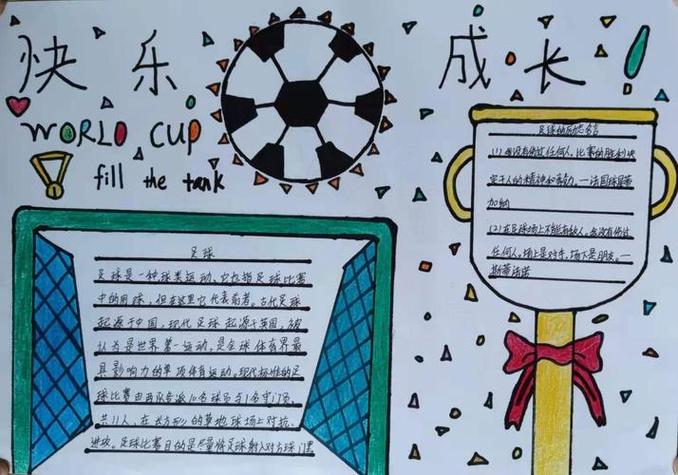 快乐
成长!
WORLD CUP
fill the tank
足球
足球是一种球类运动,它也指足球比赛
中的用球,但在这里它代表前者。古代足球
起源于中国,现代足球起源于英国,被
认为是世界第一运动,是全球体育界最
具影响力的单项体育运动。现代标准的足
球比赛由两队各派10名球员与1名守门员,
共11人,在长方形的草地球场上对抗、
进攻。足球比赛目的是尽量将足球射入对方球门里
足球的励志名言
(1)我没有伤过任何人,比赛的胜利决
定于人的精神和努力。—法国球星
加纳
(2)在足球场上不能有敌人,我没有伤过
任何人,场上是对手,场下是朋友。—